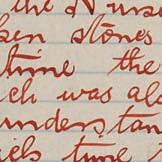 the Nurse
ken stones
time the
ich was al
unders tan
ich time